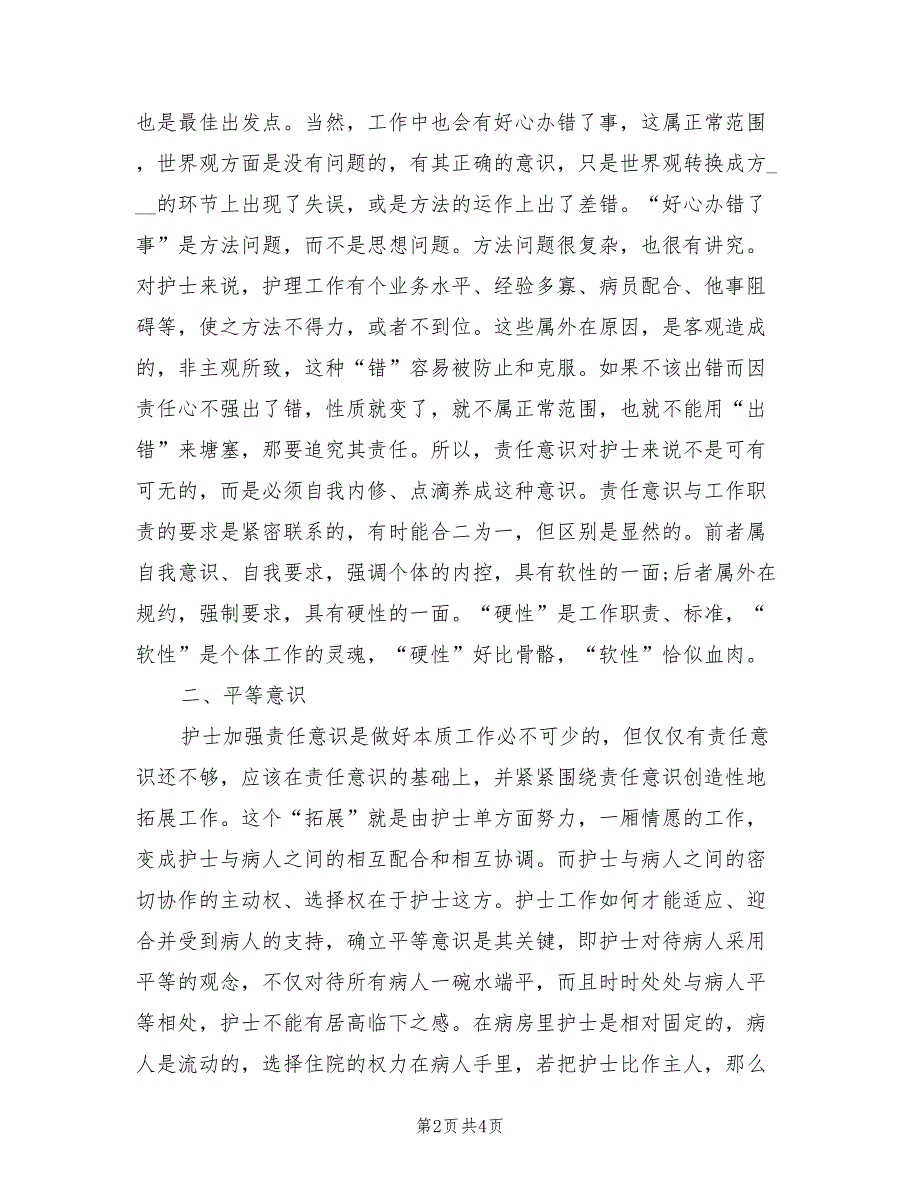 也是最佳出发点。当然，工作中也会有好心办错了事，这属正常范围
，世界观方面是没有问题的，有其正确的意识，只是世界观转换成方_
__的环节上出现了失误，或是方法的运作上出了差错。“好心办错了
事”是方法问题，而不是思想问题。方法问题很复杂，也很有讲究。
对护士来说，护理工作有个业务水平、经验多寡、病员配合、他事阻
碍等，使之方法不得力，或者不到位。这些属外在原因，是客观造成
的，非主观所致，这种“错”容易被防止和克服。如果不该出错而因
责任心不强出了错，性质就变了，就不属正常范围，也就不能用“出
错”来塘塞，那要追究其责任。所以，责任意识对护士来说不是可有
可无的，而是必须自我内修、点滴养成这种意识。责任意识与工作职
责的要求是紧密联系的，有时能合二为一，但区别是显然的。前者属
自我意识、自我要求，强调个体的内控，具有软性的一面;后者属外在
规约，强制要求，具有硬性的一面。“硬性”是工作职责、标准，“
软性”是个体工作的灵魂，“硬性”好比骨骼，“软性”恰似血肉。
二、平等意识
护士加强责任意识是做好本质工作必不可少的，但仅仅有责任意
识还不够，应该在责任意识的基础上，并紧紧围绕责任意识创造性地
拓展工作。这个“拓展”就是由护士单方面努力，一厢情愿的工作，
变成护士与病人之间的相互配合和相互协调。而护士与病人之间的密
切协作的主动权、选择权在于护士这方。护士工作如何才能适应、迎
合并受到病人的支持，确立平等意识是其关键，即护士对待病人采用
平等的观念，不仅对待所有病人一碗水端平，而且时时处处与病人平
等相处，护士不能有居高临下之感。在病房里护士是相对固定的，病
人是流动的，选择住院的权力在病人手里，若把护士比作主人，那么
第2页共4页